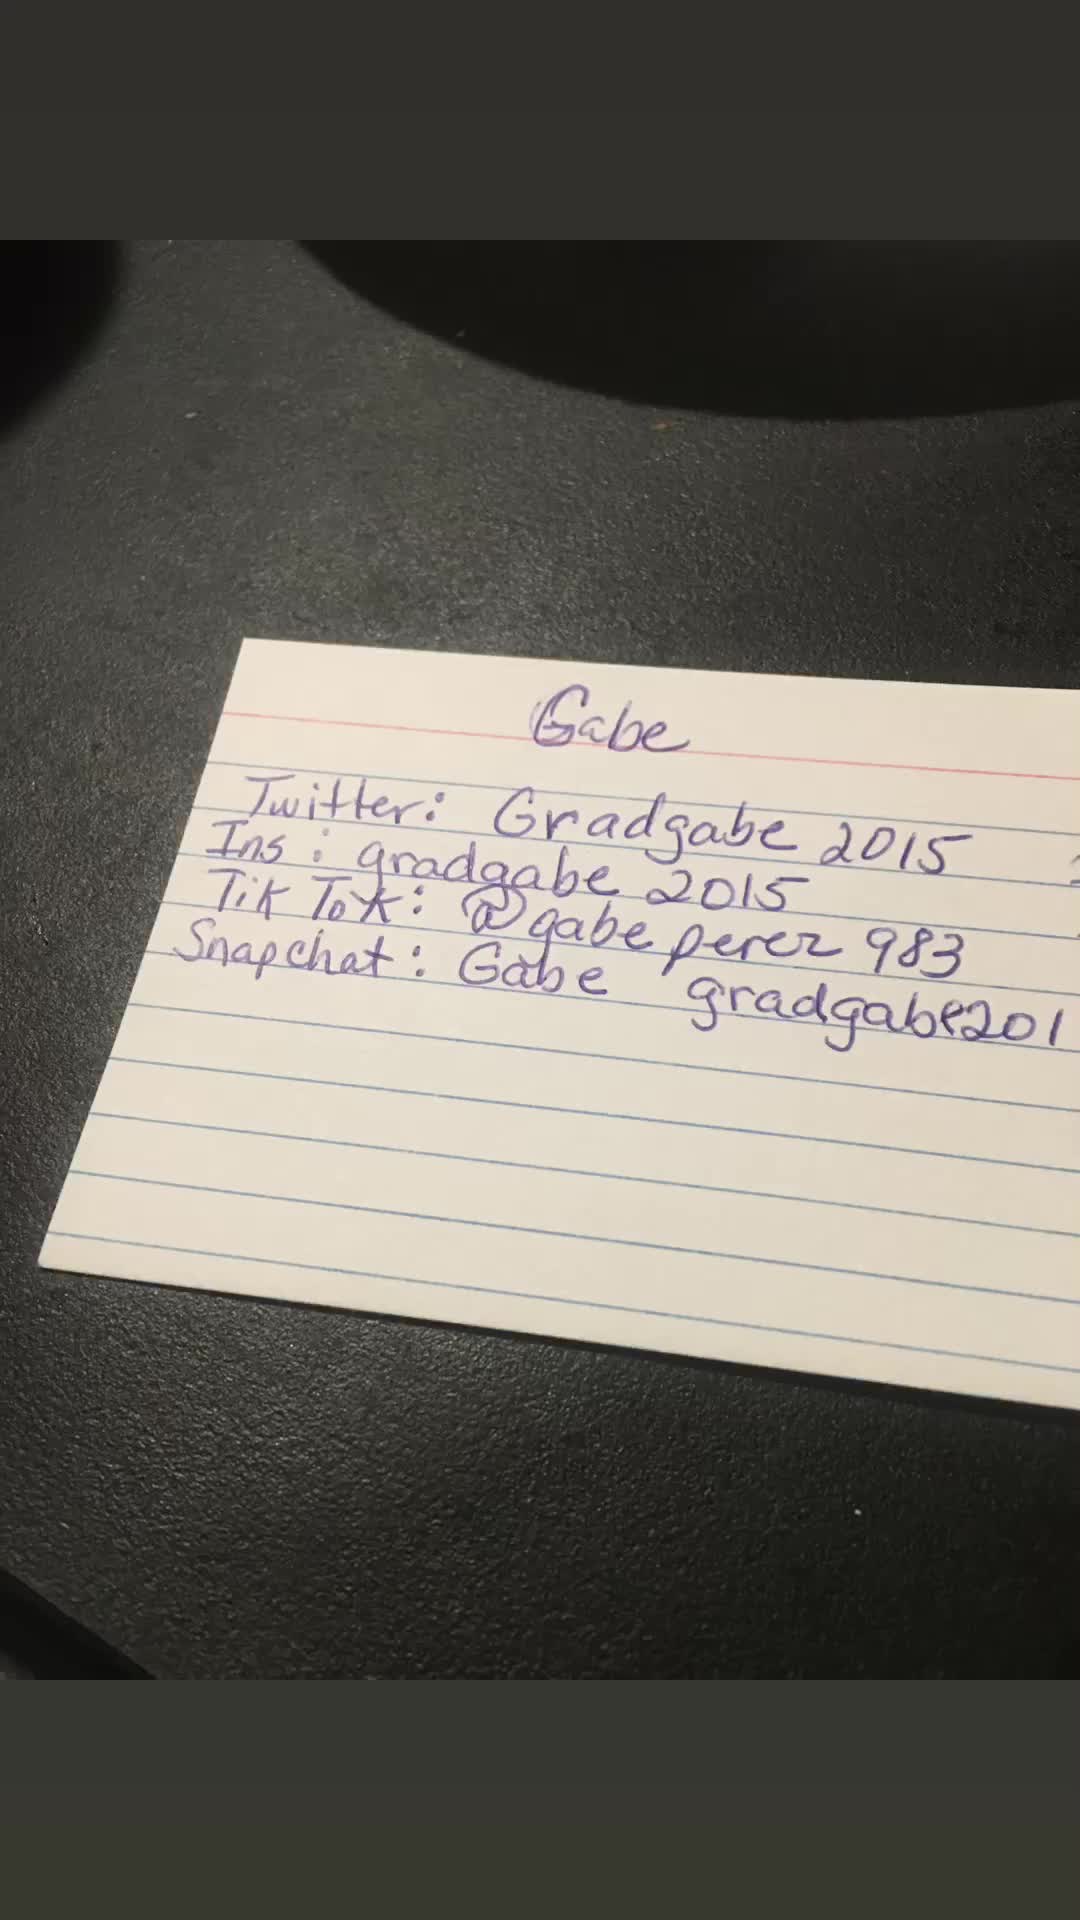 Gabe
Twitter: Gradgabe 2015
Ins: gradgabe 2015
Tik Tok: @gabe perez 983
Snapchat: Gabe gradgabe201